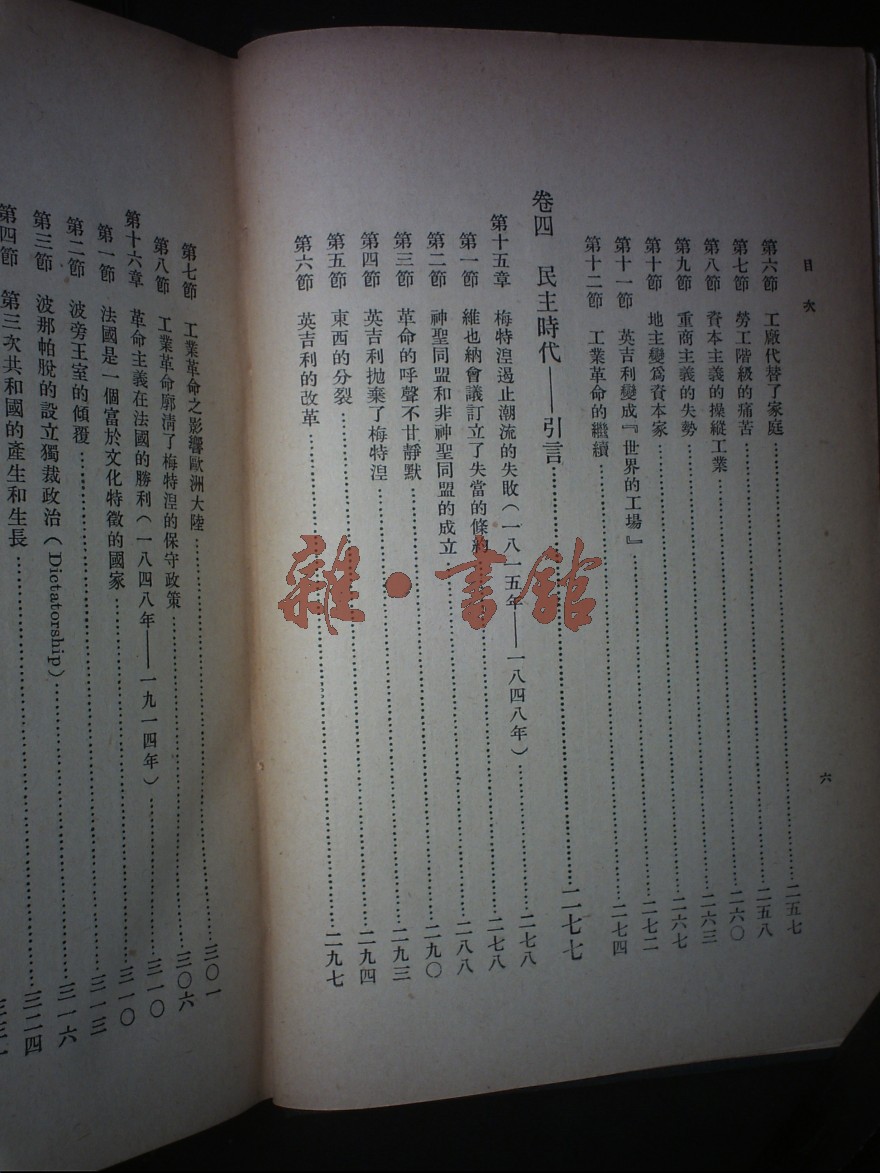 目次
六
第六節 工廠代替了家庭……二五七
第七節 勞工階級的痛苦……二五八
第八節 資本主義的操縱工業……二六〇
第九節 重商主義的失勢……二六三
第十節 地主變爲資本家……二六七
第十一節 英吉利變成『世界的工場』……二七二
第十二節 工業革命的繼續……二七四
卷四 民主時代——引言……二七七
第十五章 梅特涅遏止潮流的失敗(一八一五年——一八四八年)……二七八
第一節 維也納會議訂立了失當的條約……二七八
第二節 神聖同盟和非神聖同盟的成立……二八八
第三節 革命的呼聲不甘靜默……二九〇
第四節 英吉利拋棄了梅特涅……二九三
第五節 東西的分裂……二九四
第六節 英吉利的改革……二九七
第七節 工業革命之影響歐洲大陸……三〇一
第八節 工業革命廓清了梅特涅的保守政策……三〇六
第十六章 革命主義在法國的勝利(一八四八年——一九一四年)……三一〇
第一節 法國是一個富於文化特徵的國家……三一〇
第二節 波旁王室的傾覆……三一三
第三節 波那帕脫的設立獨裁政治(Dictatorship)……三一六
第四節 第三次共和國的產生和生長……三二四
雜·書館